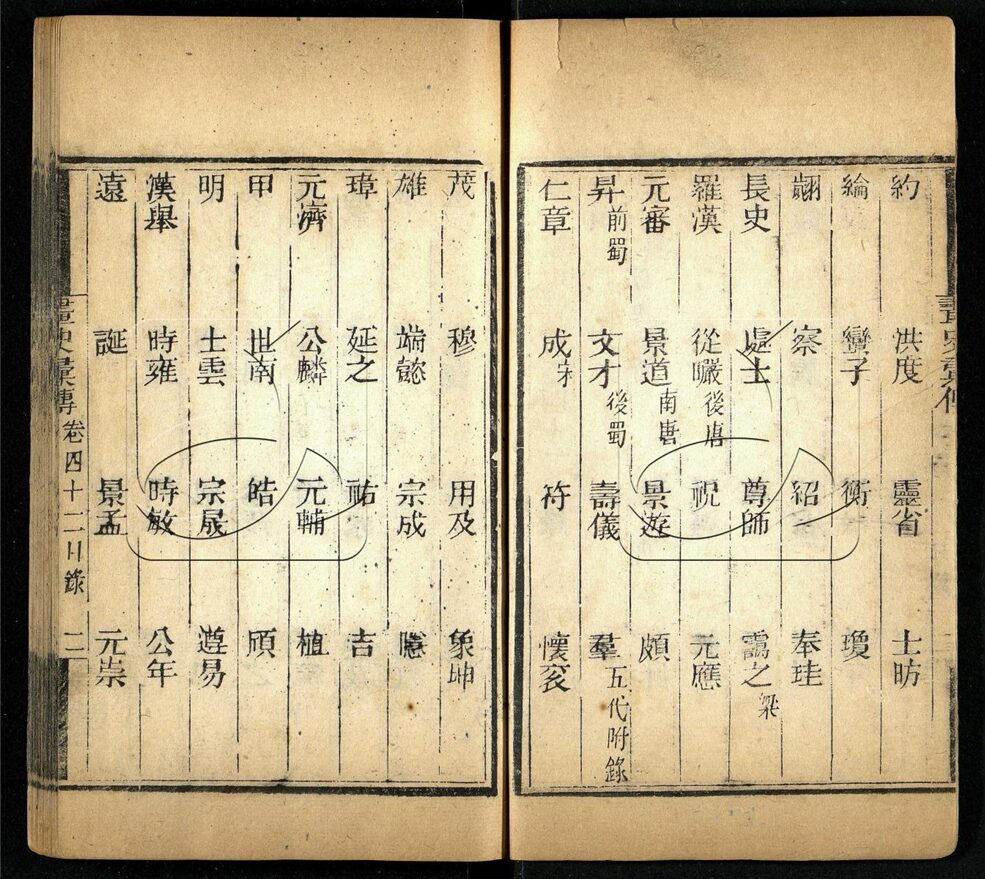 約 洪度 靈省 士昉
綸 蠻子 衡 瓊
翽 察 紹 奉珪
長史 處士 尊師 靄之梁
羅漢 從曮後唐 祝 元應
元審 景道南唐 景遊 頗
昇前蜀 文才後蜀 壽儀 羣五代附錄
仁章 成宋 符 懷袞
茂 穆 用及 象坤
雄 端懿 宗成 隱
瑋 延之 祐 吉
元濟 公麟 元輔 植
甲 世南 皓 頎
明 士雲 宗晟 遵易
漢舉 時雍 時敏 公年
遠 誕 景孟 元崇
畫史彙傳卷四十二目錄 二